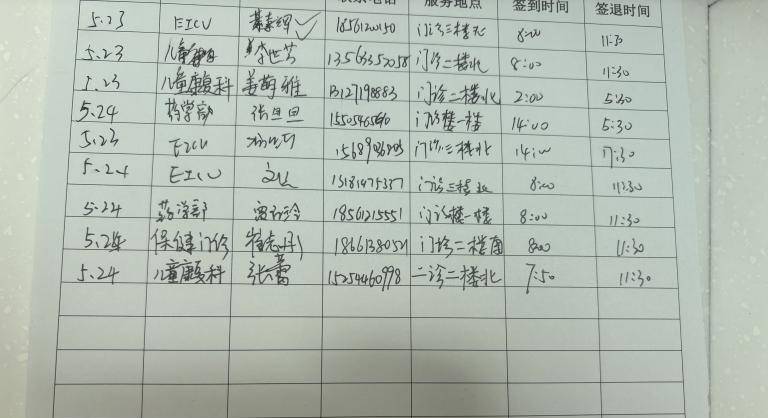 服务地点 签到时间 签退时间
5.23 EICU 门诊三楼 8:00 11:30
5.23 儿童 李世芳 13563352058 门诊二楼北 8:00 11:30
5.23 儿童康复科 姜萌雅 13127198883 门诊二楼北 2:00 5:30
5.24 药学部 张旦旦 门诊楼一楼 14:00 5:30
5.23 EICU 门诊三楼北 14:00 17:30
5.24 EICU 13181475337 门诊三楼北 8:00 11:30
5.24 药学部 18561215551 门诊楼一楼 8:00 11:30
5.24 保健门诊 18661380521 门诊二楼南 8:00 11:30
5.24 儿童康复科 张蕾 15254460998 二诊二楼北 7:50 11:30